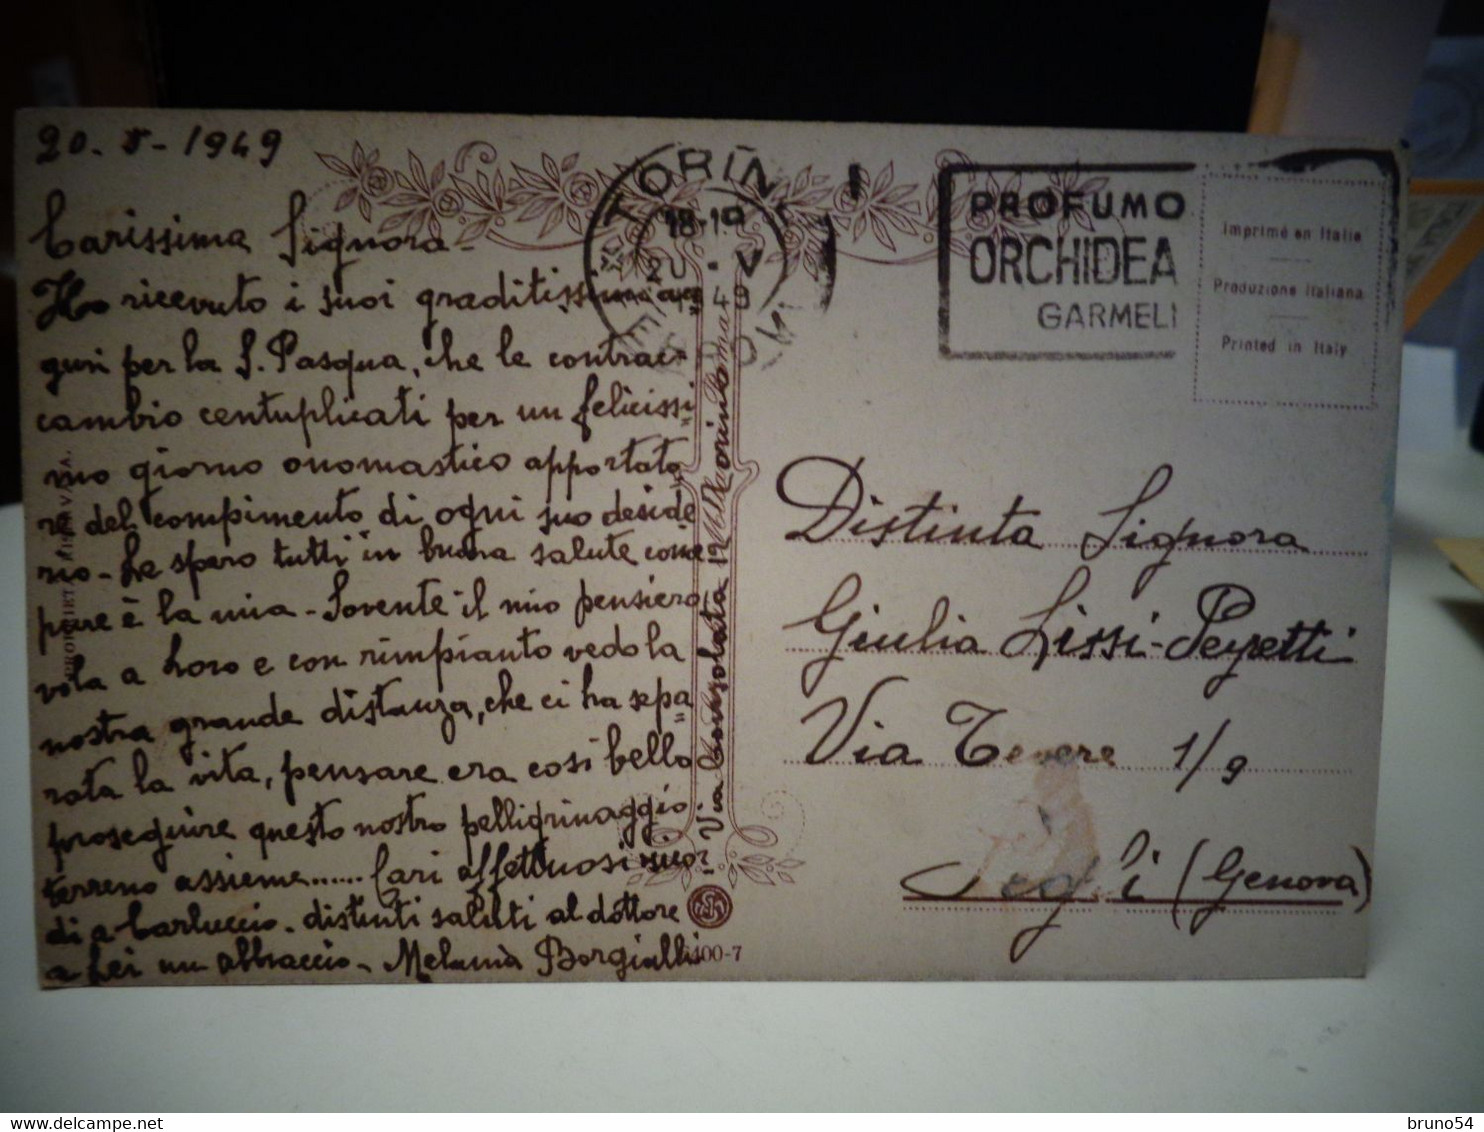 20-5-1949
Carissima Signora-
Ho ricevuto i suoi graditissimi au=
guri per la S. Pasqua, che le contrac-
cambio centuplicati per un felicissi=
mo giorno onomastico apportato=
re del compimento di ogni suo deside
rio-Le spero tutti in buona salute come
pure è la mia-Sovente il mio pensiero
vola a Loro e con rimpianto vedo la
nostra grande distanza, che ci ha sepa=
rata la vita, pensare era così bello
proseguire questo nostro pelligrinaggio
terreno assieme...... Cari affettuosi ricor
di a Carluccio-distinti saluti al dottore
a Lei un abbraccio-Melania Borgiallis
Via Consolata 12
TORINO
18-19
20-V
49
PROFUMO
ORCHIDEA
GARMELI
Imprimé en Italie
Produzione Italiana
Printed in Italy
Distinta Signora
Giulia Lissi-Peyretti
Via Tevere 1/9
Pegli (Genova)
00-7
bruno54